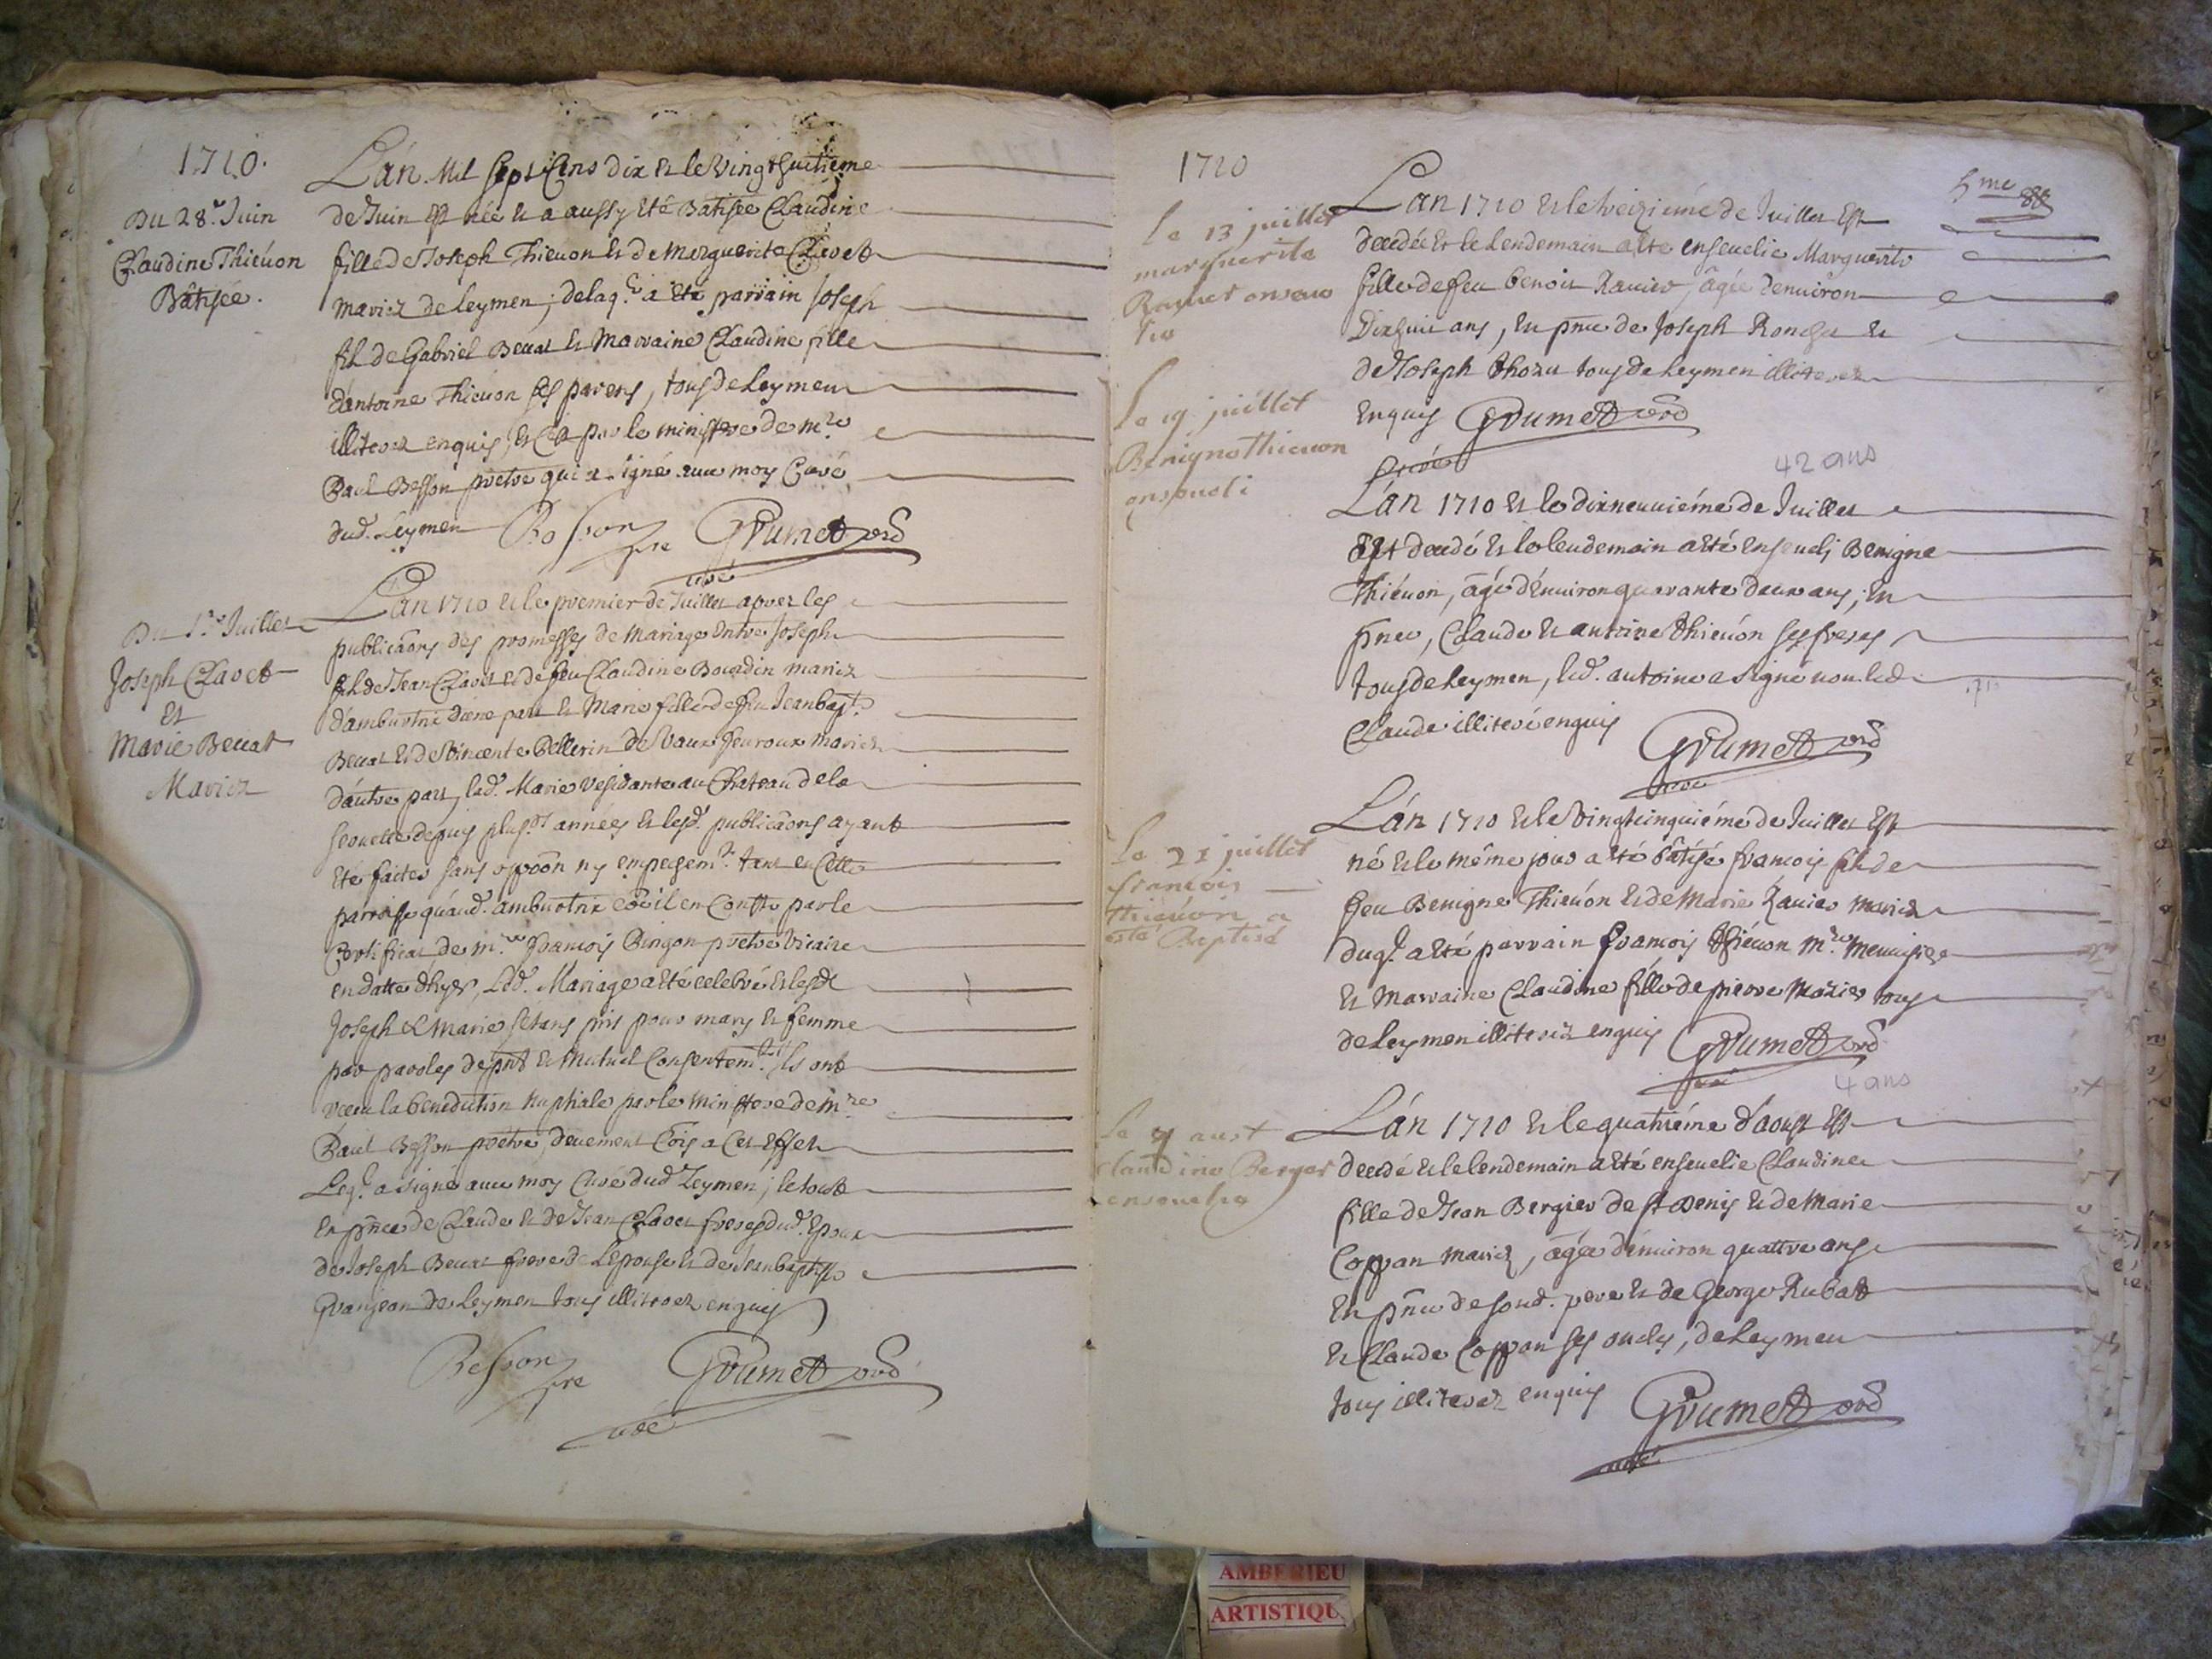 1710.
Du 28.e Juin
Claudine Thiéuon
Bâtisée.
L'án. Mil Sept Cens dix et le Vingt huitieme
de Juin Est née et a aussy Eté Batisée Claudine
fille de Joseph Thieuon et de Merguerite Clavet
mariez de leymen; de laq.le a Eté parrain Joseph
fil de Gabriel Beccat et Marraine Claudine fille
d'antoine Thieuon ses parens, tous de leymen
illiterez enquis, et Ce par le ministere de m.re
Paul Besson prêtre qui a signé avec moy Curé
dud. Leymen Besson pre Grumet ord
curé
Du 1.er Juillet
Joseph Clavet
Et
Marie Beccat
Mariez
L'án 1710 et le premier de Juillet apres les
publicãons des promesses de Mariage entre Joseph
fil de Jean Clavet et de feu Claudine Bourdin mariez
d'ambutrix d'une part et Marie fille de feu Jean bap.te
Beccat et de Vincente Pellerin de Vaux feuroux mariez
d'autre part, lad. Marie residante au Chateau de la
seruette depuis plus.rs années et lesd. publicãons ayant
Eté faites sans oppõon ny empechem.t tant en Cette
parroisse qu'aud. ambutrix coe il en Conste par le
Certificat de m.re francois Pingon prêtre vicaire
en datte d'hyer, Led. Mariage a Eté celebré et lesd.
Joseph & Marie s'etans pris pour mary et femme
par paroles de pnt et Mutuel Consentem.t Ils ont
receu la benediction Nuptiale par le ministere de m.re
Paul Besson prêtre, deuement Cõis a Cet Effet
Leq.l a signé avec moy Curé dud Leymen; le tout
En pñce de Claude et de Jean Clavet freres dud. Epoux
de Joseph Beccat frere de L'epouse et de Jean baptiste
Granjean de Leymen tous illiterez enquis
Besson pre Grumet ord
curé
1710
5me 88
le 13 juillet
marguerite
L'an 1710 et le treizieme de Juillet Est
decedée et le lendemain a Eté enseuelie Marguerite
fille de feu benoit Rauier, âgée d'enuiron
Dixhuit ans, En pnce de Joseph Ronchet et
de Joseph thozu tous de Leymen illiterez
Enquis Grumet ord
Curé
le 19 juillet
Benigne thieuon
enseueli
42 ans
L'án 1710 et le dixneuuiéme de Juillet
Est decedé et le lendemain a Eté enseueli Benigne
Thiéuon, âgé d'enuiron quarante deux ans, En
pnce, Claude et antoine thieuon ses freres
tous de Leymen, led. antoine a signé non led.
Claude illiteré enquis Grumet ord
curé
le 21 juillet
francois
thieuon a
esté Baptisé
L'án 1710 et le Vingtcinquiéme de Juillet Est
né et le même jour a Eté bâtisé francois fil de
feu Benigne Thieuón et de Marie Rauier mariez
duq.l a Eté parrain francois thiéuon m.re menuisier
et Marraine Claudine fille de pierre Mazier tous
de Leymen illiterez enquis Grumet ord
curé
4 ans
le 4 aust
claudine Berger
enseuelie
L'án 1710 et le quatriéme d'aoust Est
decedé et le lendemain a Eté enseuelie Claudine
fille de Jean Bergier de st Denis et de Marie
Coppan mariez, âgée d'enuiron quattre ans
En pñce de sond. pere et de George Rubat
et Claude Coppan ses oncles, de Leymen
tous illiterez enquis Grumet ord
curé
AMBERIEU
ARTISTIQU